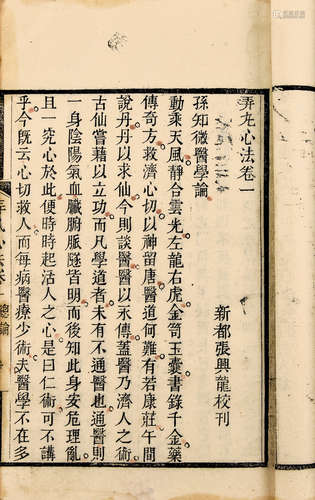 弄丸心法卷一
新都張興龍校刊
孫知微醫學論
動乘天風靜合雲光左龍右虎金笥玉囊書錄千金藥
傳奇方救濟心切以神留唐醫道何難有若康莊午間
說丹丹以求仙今則談醫醫以永傳蓋醫乃濟人之術
古仙嘗藉以立功而凡學道者未有不通醫也通醫則
一身陰陽氣血臟腑脈隧皆明而後知此身安危理亂
且一究心於此便時時起活人之心是曰仁術可不講
乎今既云心切救人而每病醫療少術夫醫學不在多
總論